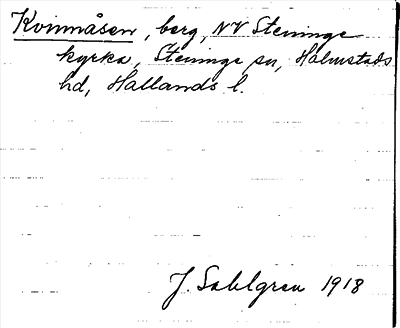 Kvinnåsen, berg, NV Steninge
kyrka, Steninge sn, Halmstads
hd, Hallands l.
J. Sahlgren 1918